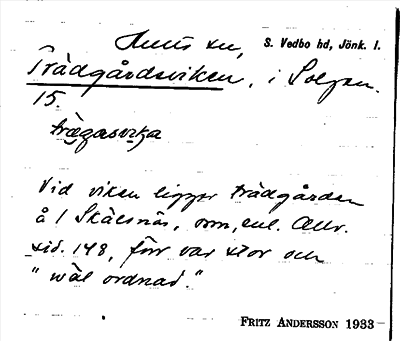 S. Vedbo hd, Jönk. l.
Trädgårdsviken, i Solgen.
15.
trägasvika
Vid viken ligger trädgården
å 1 Skälsnäs, som, enl. Allv.
sid. 148, förr var stor och
"wäl ordnad."
FRITZ ANDERSSON 1933